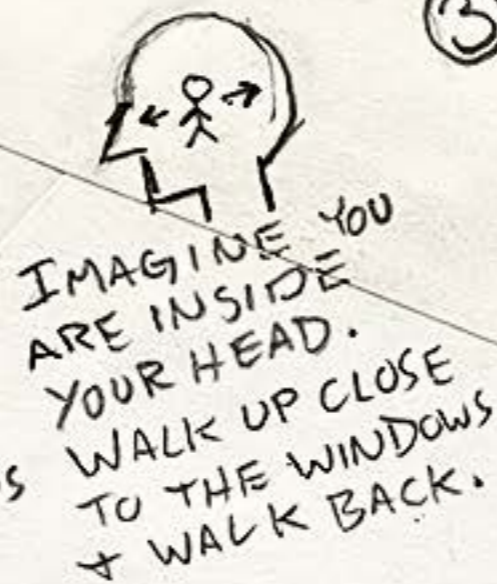 3
IMAGINE YOU
ARE INSIDE
YOUR HEAD.
WALK UP CLOSE
TO THE WINDOWS
+ WALK BACK.